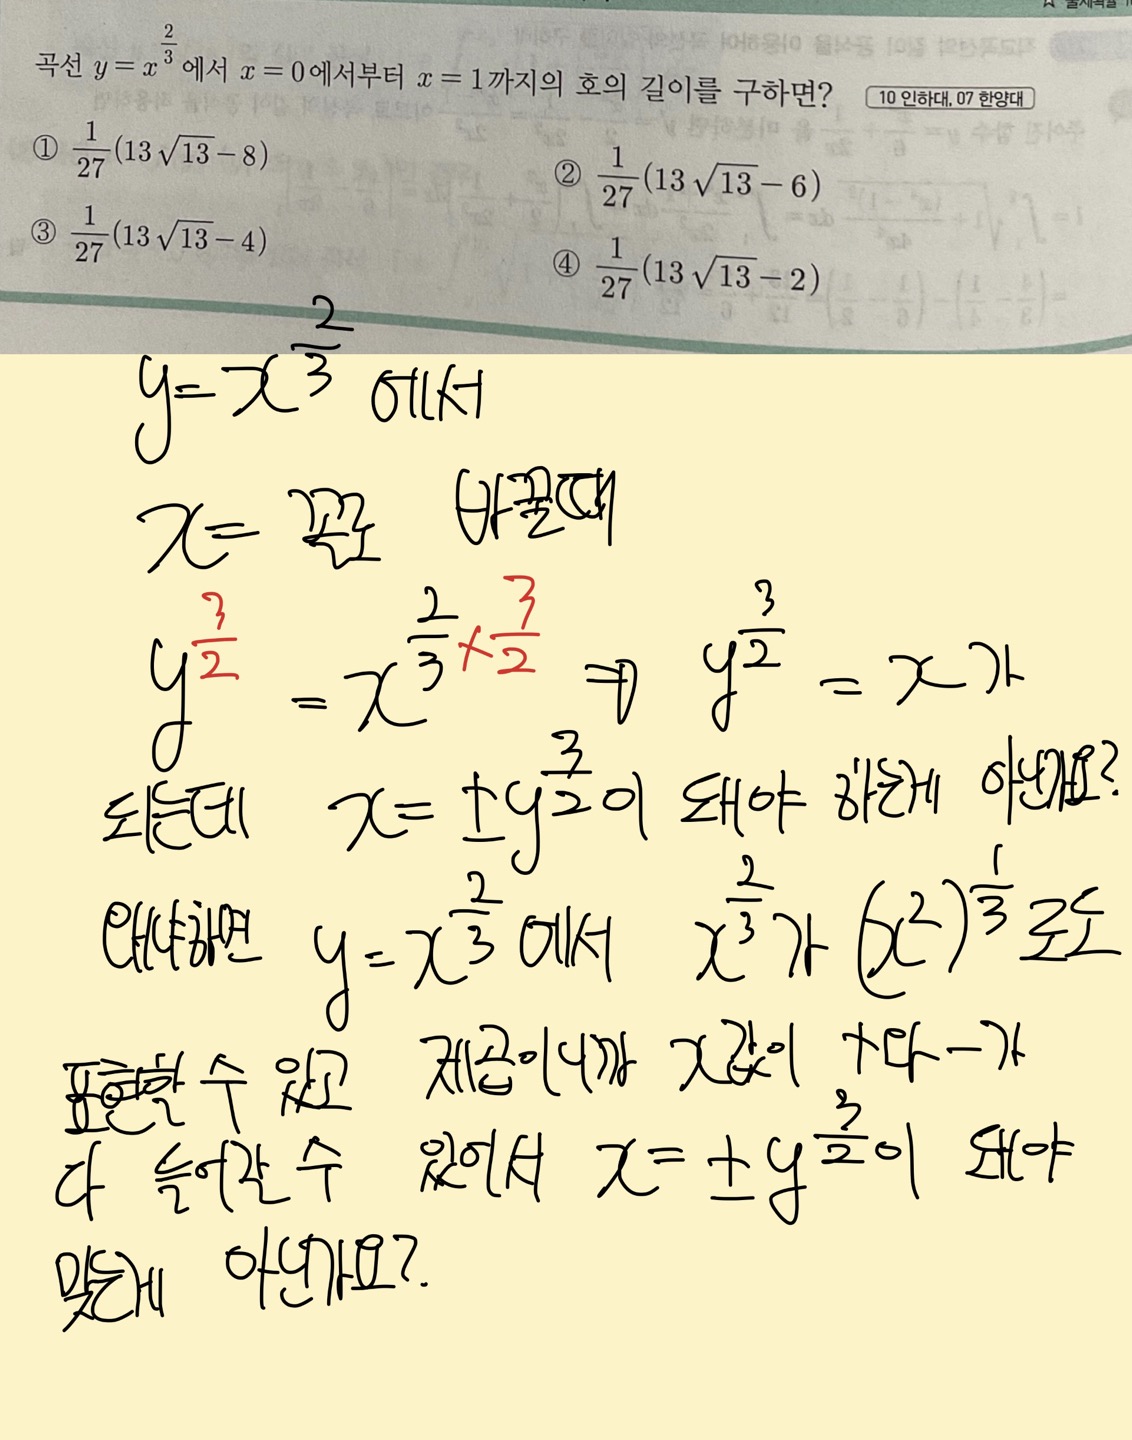 곡선 y = x^{2/3} 에서 x = 0에서부터 x = 1까지의 호의 길이를 구하면? 10 인하대, 07 한양대
① 1/27 (13√13 − 8)
② 1/27 (13√13 − 6)
③ 1/27 (13√13 − 4)
④ 1/27 (13√13 − 2)
y = x^{2/3} 에서
x = 꼴로 바꿀때
y^{3/2} = x^{2/3 × 3/2} ⇒ y^{3/2} = x 가
되는데 x = ± y^{3/2} 이 돼야 하는게 아닌가요?
왜냐하면 y = x^{2/3} 에서 x^{2/3} 가 (x^2)^{1/3} 로도
표현할 수 있고 제곱이니까 x값이 + 다 − 가
다 들어갈 수 있어서 x = ± y^{3/2} 이 돼야
맞는게 아닌가요?